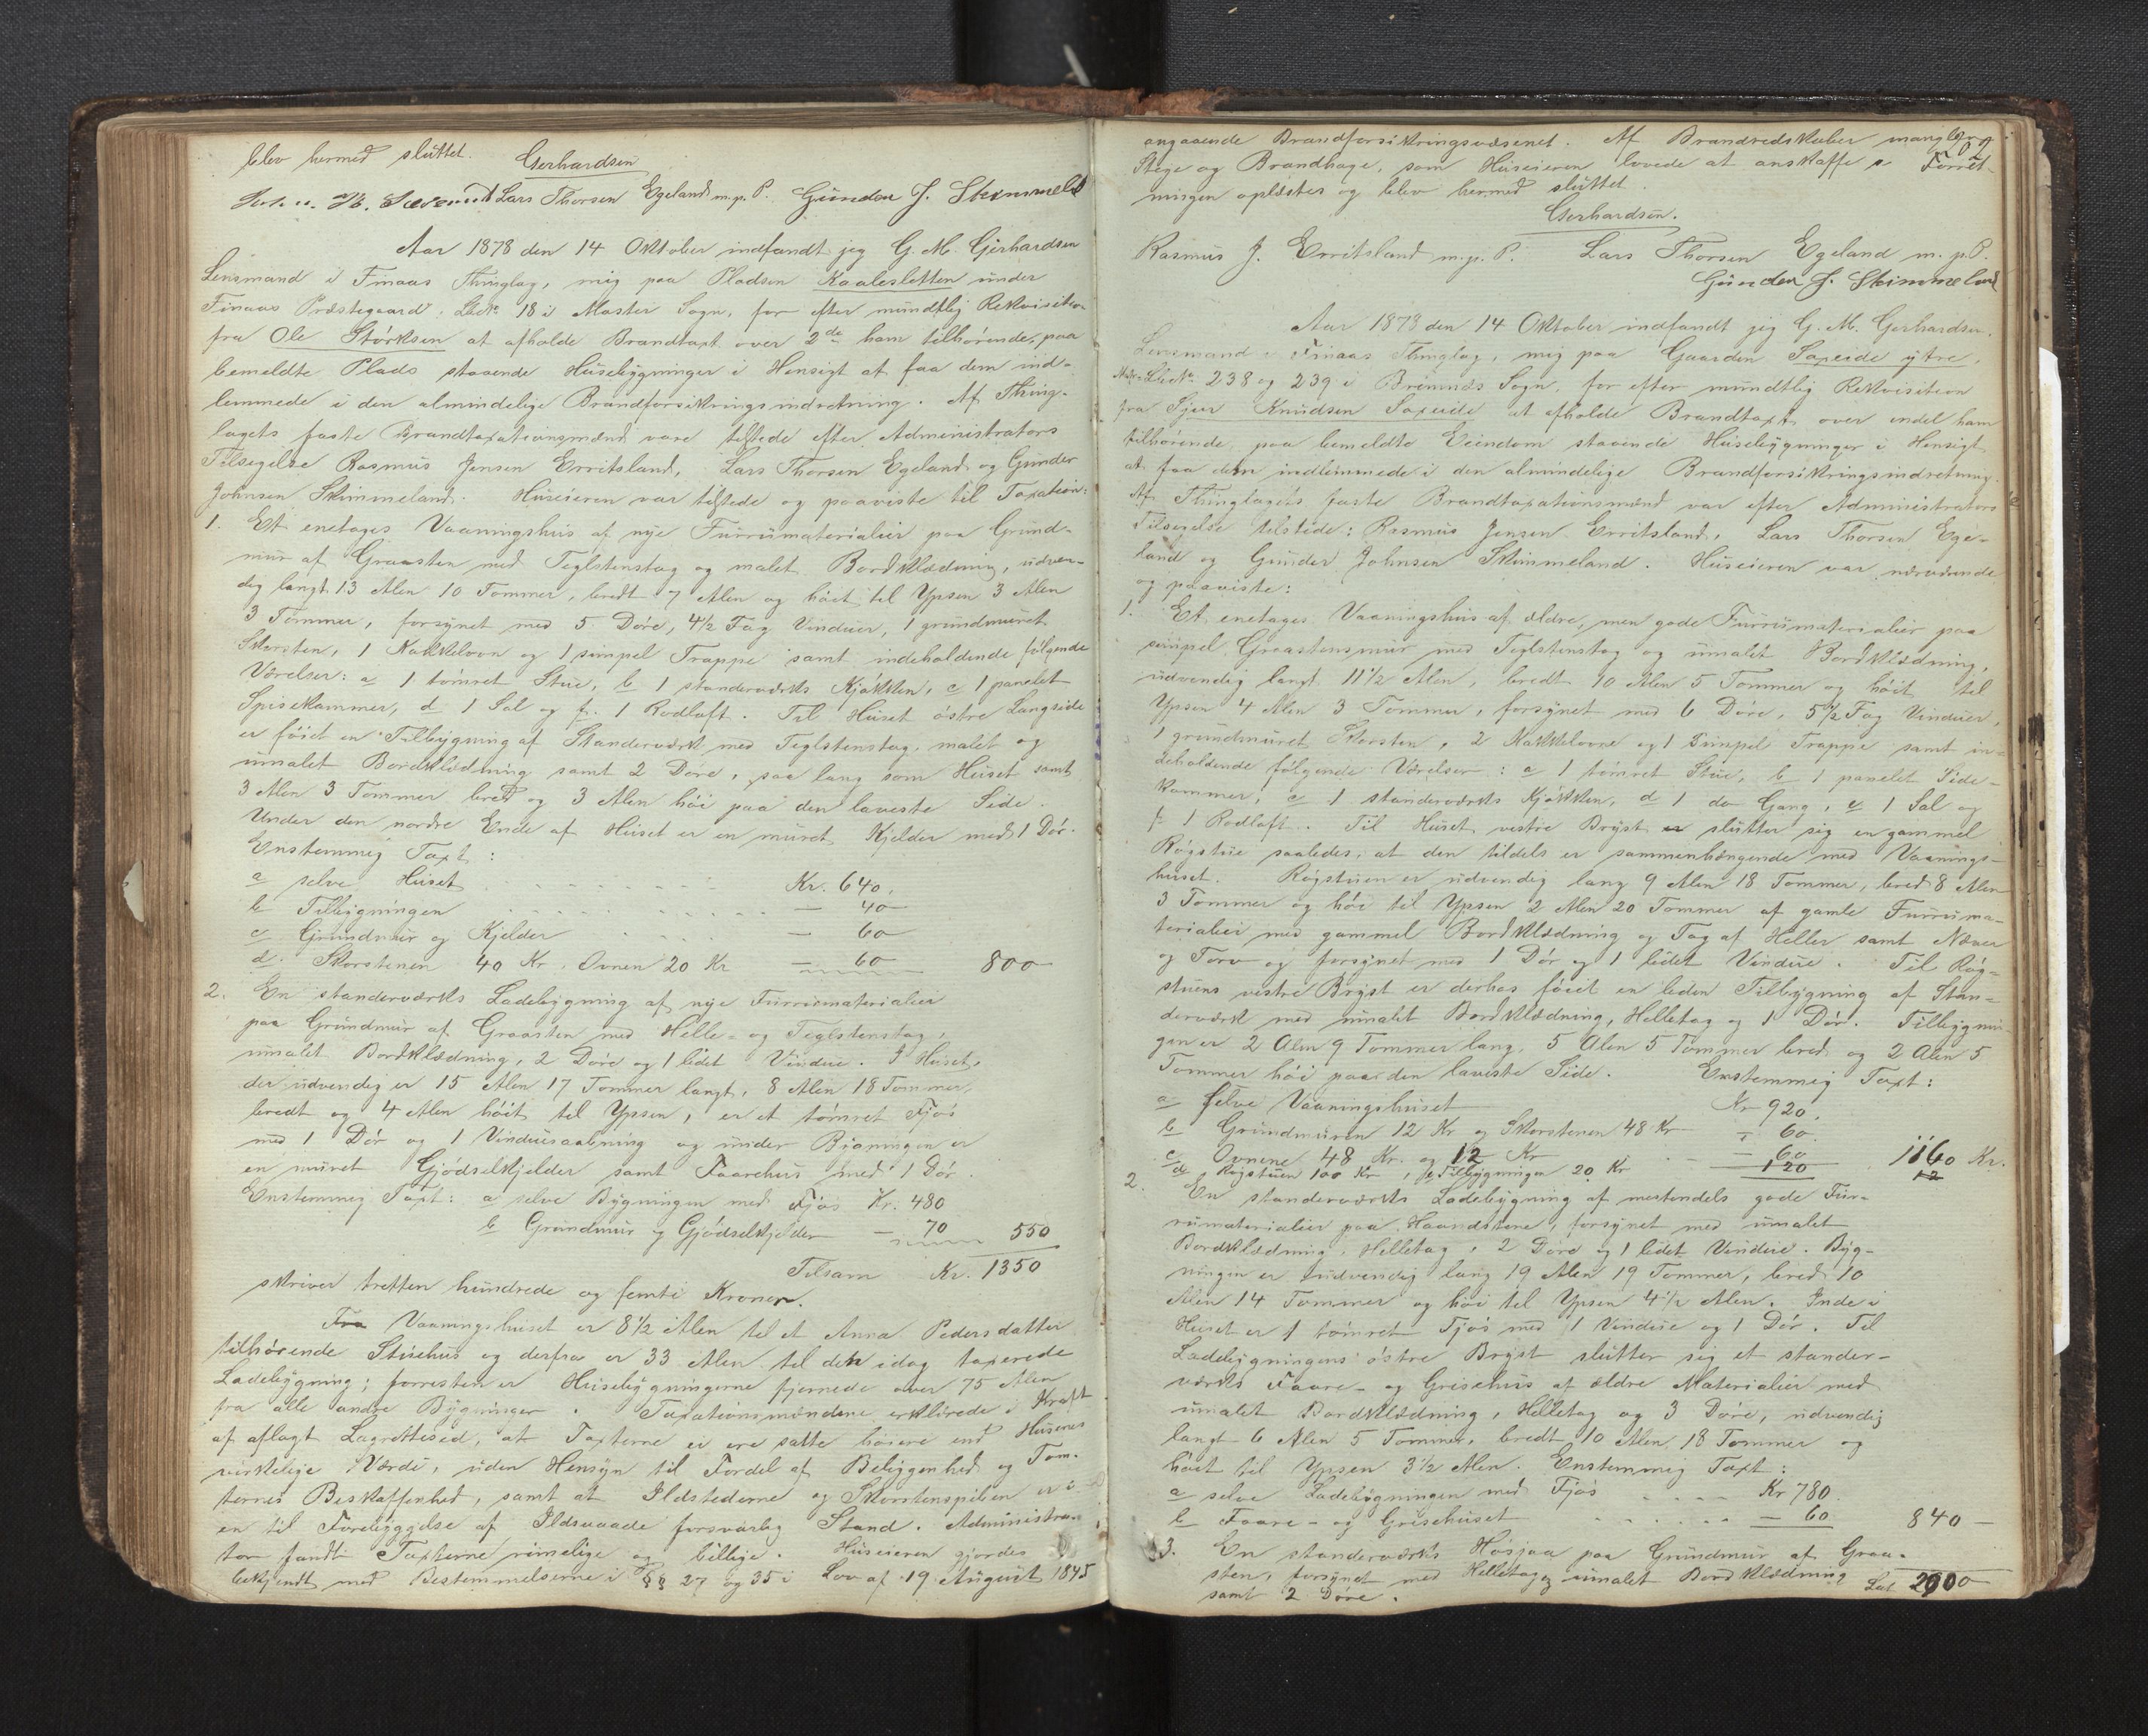 blev hermed sluttet. Gerhardsen
Lars Thorsen Egeland m. p. P. Gunder J. Skimmeland
Aar 1878 den 14 Oktober indfandt jeg G. M. Gerhardsen
Lensmand i Finaas Thinglag, mig paa Pladsen Kaalesletten under
Finaas Præstegaard, Lbno 18 i Moster Sogn, for efter mundtlig Rekvisition
fra Ole Størksen at afholde Brandtaxt over 2de ham tilhørende, paa
bemeldte Plads staaende Husebygninger i Hensigt at faa dem ind-
lemmede i den almindelige Brandforsikringsindretning. Af Thing-
lagets faste Brandtaxationsmænd vare tilstede efter Administrators
Tilsigelse Rasmus Jensen Erritsland, Lars Thorsen Egeland og Gunder
Johnsen Skimmeland. Huseieren var tilstede og paaviste til Taxation:
1. Et enetages Vaaningshus af nye Furrumaterialier paa Grund-
mur af Graasten med Teglstenstag og malet Bordklædning, udven-
dig langt 13 Alen 10 Tommer, bredt 7 Alen og høit til Ypsen 3 Alen
3 Tommer, forsynet med 5 Døre, 4½ Fag Vinduer, 1 grundmuret
Skorsten, 1 Kakkelovn og 1 simpel Trappe samt indeholdende følgende
Værelser: a 1 tømret Stue, b 1 standerværks Kjøkken, c 1 panelet
Spisekammer, d 1 Sal og f. 1 Rodloft. Til Huset østre Langside
er føiet en Tilbygning af Standerværk med Teglstenstag, malet og
umalet Bordklædning samt 2 Døre, saa lang som Huset samt
3 Alen 3 Tommer bred og 3 Alen høi paa den laveste Side.
Under den nordre Ende af Huset er en muret Kjelder med 1 Dør.
Enstemmig Taxt:
a selve Huset Kr. 640.
b Tilbygningen — 40
c Grundmur og Kjelder — 60
d. Skorstenen 40 Kr. Ovnen 20 Kr — 60 800
2. En standerværks Ladebygning af nye Furrumaterialier
paa Grundmur af Graasten med Helle- og Teglstenstag,
umalet Bordklædning, 2 Døre og 1 lidet Vindue. I Huset,
der udvendig er 15 Alen 17 Tommer langt, 8 Alen 18 Tommer
bredt og 4 Alen høit til Ypsen, er et tømret Fjøs
med 1 Dør og 1 Vinduesaabning og under Bygningen er
en muret Gjødselkjelder samt Faarehus med 1 Dør.
Enstemmig Taxt: a selve Bygningen med Fjøs Kr. 480
b Grundmur og Gjødselkjelder — 70 550
Tilsam Kr. 1350
skriver tretten hundrede og femti Kroner.
Fra Vaaningshuset er 8½ Alen til et Anna Pedersdatter
tilhørende Stuehus og derfra er 33 Alen til den idag taxerede
Ladebygning; forresten er Husebygningerne fjernede over 75 Alen
fra alle andre Bygninger. Taxationsmændene erklærede i Kraft
af aflagt Lagrettesed, at Taxterne ei ere satte høiere end Husenes
virkelige Værdi, uden Hensyn til Fordel af Beliggenhed og Tom-
ternes Beskaffenhed, samt at Ildstederne og Skorstenspiben er i
en til Forebyggelse af Ildsvaade forsvarlig Stand. Administra-
tor fandt Taxterne rimelige og billige. Huseieren gjordes
bekjendt med Bestemmelserne i §§ 27 og 35 i Lov af 19 August 1845
angaaende Brandforsikringsvæsenet. Af Brandredskaber mangler
Stige og Brandhage, som Huseieren lovede at anskaffe. Forret-
ningen oplæstes og blev hermed sluttet.
Gerhardsen.
Rasmus J. Erritsland m. p. P. Lars Thorsen Egeland m. p. P.
Gunder J. Skimmeland
Aar 1878 den 14 Oktober indfandt jeg G. M. Gerhardsen.
Lensmand i Finaas Thinglag, mig paa Gaarden Saxeide ytre,
Mtr. Lbno 238 og 239 i Bremnæs Sogn, for efter mundtlig Rekvisition
fra Sjur Knudsen Saxeide at afholde Brandtaxt over endel ham
tilhørende, paa bemeldte Eiendom staaende Husebygninger i Hensigt
at faa dem indlemmede i den almindelige Brandforsikringsindretning.
Af Thinglagets faste Brandtaxationsmænd var efter Administrators
Tilsigelse tilstede: Rasmus Jensen Erritsland, Lars Thorsen Ege-
land og Gunder Johnsen Skimmeland. Huseieren var nærværende
og paaviste:
1. Et enetages Vaaningshus af ældre, men gode Furrumaterialier paa
simpel Graastensmur med Teglstenstag og umalet Bordklædning,
udvendig langt 11½ Alen, bredt 10 Alen 5 Tommer og høit til
Ypsen 4 Alen 3 Tommer, forsynet med 6 Døre, 5½ Fag Vinduer,
1 grundmuret Skorsten, 2 Kakkelovne og 1 simpel Trappe samt in-
deholdende følgende Værelser: a 1 tømret Stue, b 1 panelet Side-
kammer, c 1 standerværks Kjøkken, d 1 do Gang, e 1 Sal og
f. 1 Rodloft. Til Huset vestre Bryst slutter sig en gammel
Røgstue saaledes, at den tildels er sammenhængende med Vaanings-
huset. Røgstuen er udvendig lang 9 Alen 18 Tommer, bred 8 Alen
3 Tommer og høi til Ypsen 2 Alen 20 Tommer af gamle Furruma-
terialier med gammel Bordklædning og Tag af Heller samt Næver
og Torv og forsynet med 1 Dør og 1 lidet Vindue. Til Røg-
stuens vestre Bryst er derhos føiet en liden Tilbygning af Stan-
derværk med umalet Bordklædning, Helletag og 1 Dør. Tilbygnin-
gen er 2 Alen 9 Tommer lang, 5 Alen 5 Tommer bred og 2 Alen 5
Tommer høi paa den laveste Side. Enstemmig Taxt:
a selve Vaaningshuset Kr 920.
b Grundmuren 12 Kr og Skorstenen 48 Kr — 60.
c Ovnene 48 Kr. og 12 Kr — 60 1160 Kr.
d Røgstuen 100 Kr, Tilbygningen 20 Kr 120
2. En standerværks Ladebygning af mestendels gode Fur-
rumaterialier paa Haandstene, forsynet med umalet
Bordklædning, Helletag, 2 Døre og 1 lidet Vindue. Byg-
ningen er udvendig lang 19 Alen 19 Tommer, bred 10
Alen 14 Tommer og høi til Ypsen 4½ Alen. Inde i
Huset er 1 tømret Fjøs med 1 Vindue og 1 Dør. Til
Ladebygningens østre Bryst slutter sig et stander-
værks Faare- og Grisehus af ældre Materialier med
umalet Bordklædning, Helletag og 3 Døre, udvendig
langt 6 Alen 5 Tommer, bredt 10 Alen 18 Tommer og
høit til Ypsen 3½ Alen. Enstemmig Taxt:
a selve Ladebygningen med Fjøs Kr 780.
b Faare- og Grisehuset — 60 840 —
3. En standerværks Høsjaa paa Grundmur af Graa-
sten, forsynet med Helletag og umalet Bordklædning
samt 2 Døre. Lat 2000